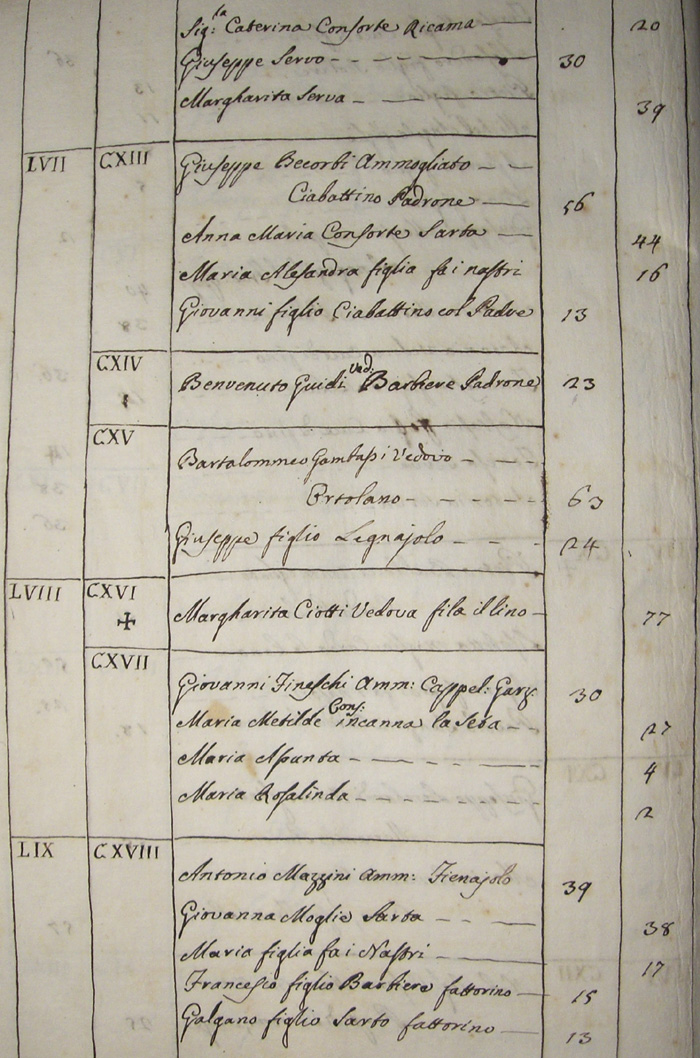 Sig:ra Caterina Consorte Ricama 20
Giuseppe Servo 30
Margharita Serva 39
LVII CXIII Giuseppe Becorbi Ammogliato
Ciabattino Padrone 56
Anna Maria Consorte Sarta 44
Maria Alesandra figlia fa i nastri 16
Giovanni figlio Ciabattino col Padre 13
CXIV Benvenuto Guidi Ved: Barbiere Padrone 23
CXV
Bartalommeo Vedovo
Ortolano 63
Giuseppe figlio Legnajolo 24
LVIII CXVI
Margharita Ciotti Vedova fila il lino 77
CXVII
Giovanni Fineschi Amm: Cappel: Garz: 30
Maria Metilde Cons: incanna la Seta 27
Maria Assunta 4
Maria Rosalinda 2
LIX CXVIII
Antonio Mazzini Amm: Fienajolo 39
Giovanna Moglie Sarta 38
Maria figlia fa i Nastri 17
Francesco figlio Barbiere fattorino 15
Galgano figlio Sarto fattorino 13